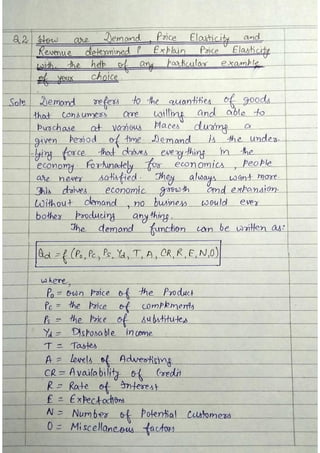 Q.2 How are Demand, Price Elasticity and
Revenue determined? Explain Price Elasticity
with the help of any particular example
of your choice.
Soln Demand refers to the quantities of goods
that consumers are willing and able to
purchase at various Places during a
given period of time. Demand is the under-
lying force that drives everything in the
economy Fortunately for economics, People
are never satisfied. They always want more.
This drives economic growth and expansion.
Without demand, no business would ever
bother Producing anything.
The demand function can be written as:
Qd = f (Po, Pc, Ps, Yd, T, A, CR, R, E, N, O)
where,
Po = own Price of the Product
Pc = the Price of complements
Ps = the Price of substitutes
Yd = Disposable income
T = Tastes
A = Levels of Advertising
CR = Availability of Credit
R = Rate of Interest
E = Expectations
N = Number of Potential Customers
O = Miscellaneous factors